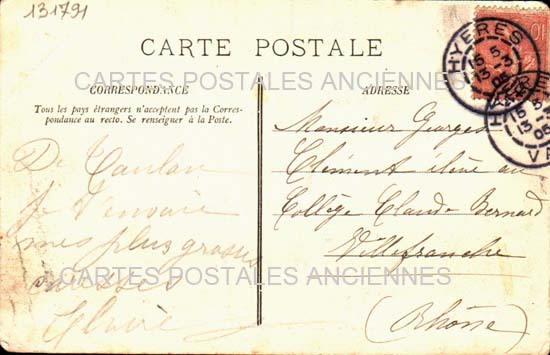 131791
CARTE POSTALE
CORRESPONDANCE
Tous les pays étrangers n'acceptent pas la Corres-
pondance au recto. Se renseigner à la Poste.
De Toulon
Je t'envoie
mes plus grosses
Claire
ADRESSE
Monsieur Georges
Clément élève au
Collège Claude Bernard
Villefranche
(Rhône)
HYERES
15 5
13 -3
05
VA
CARTES POSTALES ANCIENNES
CARTES POSTALES ANCIENNES